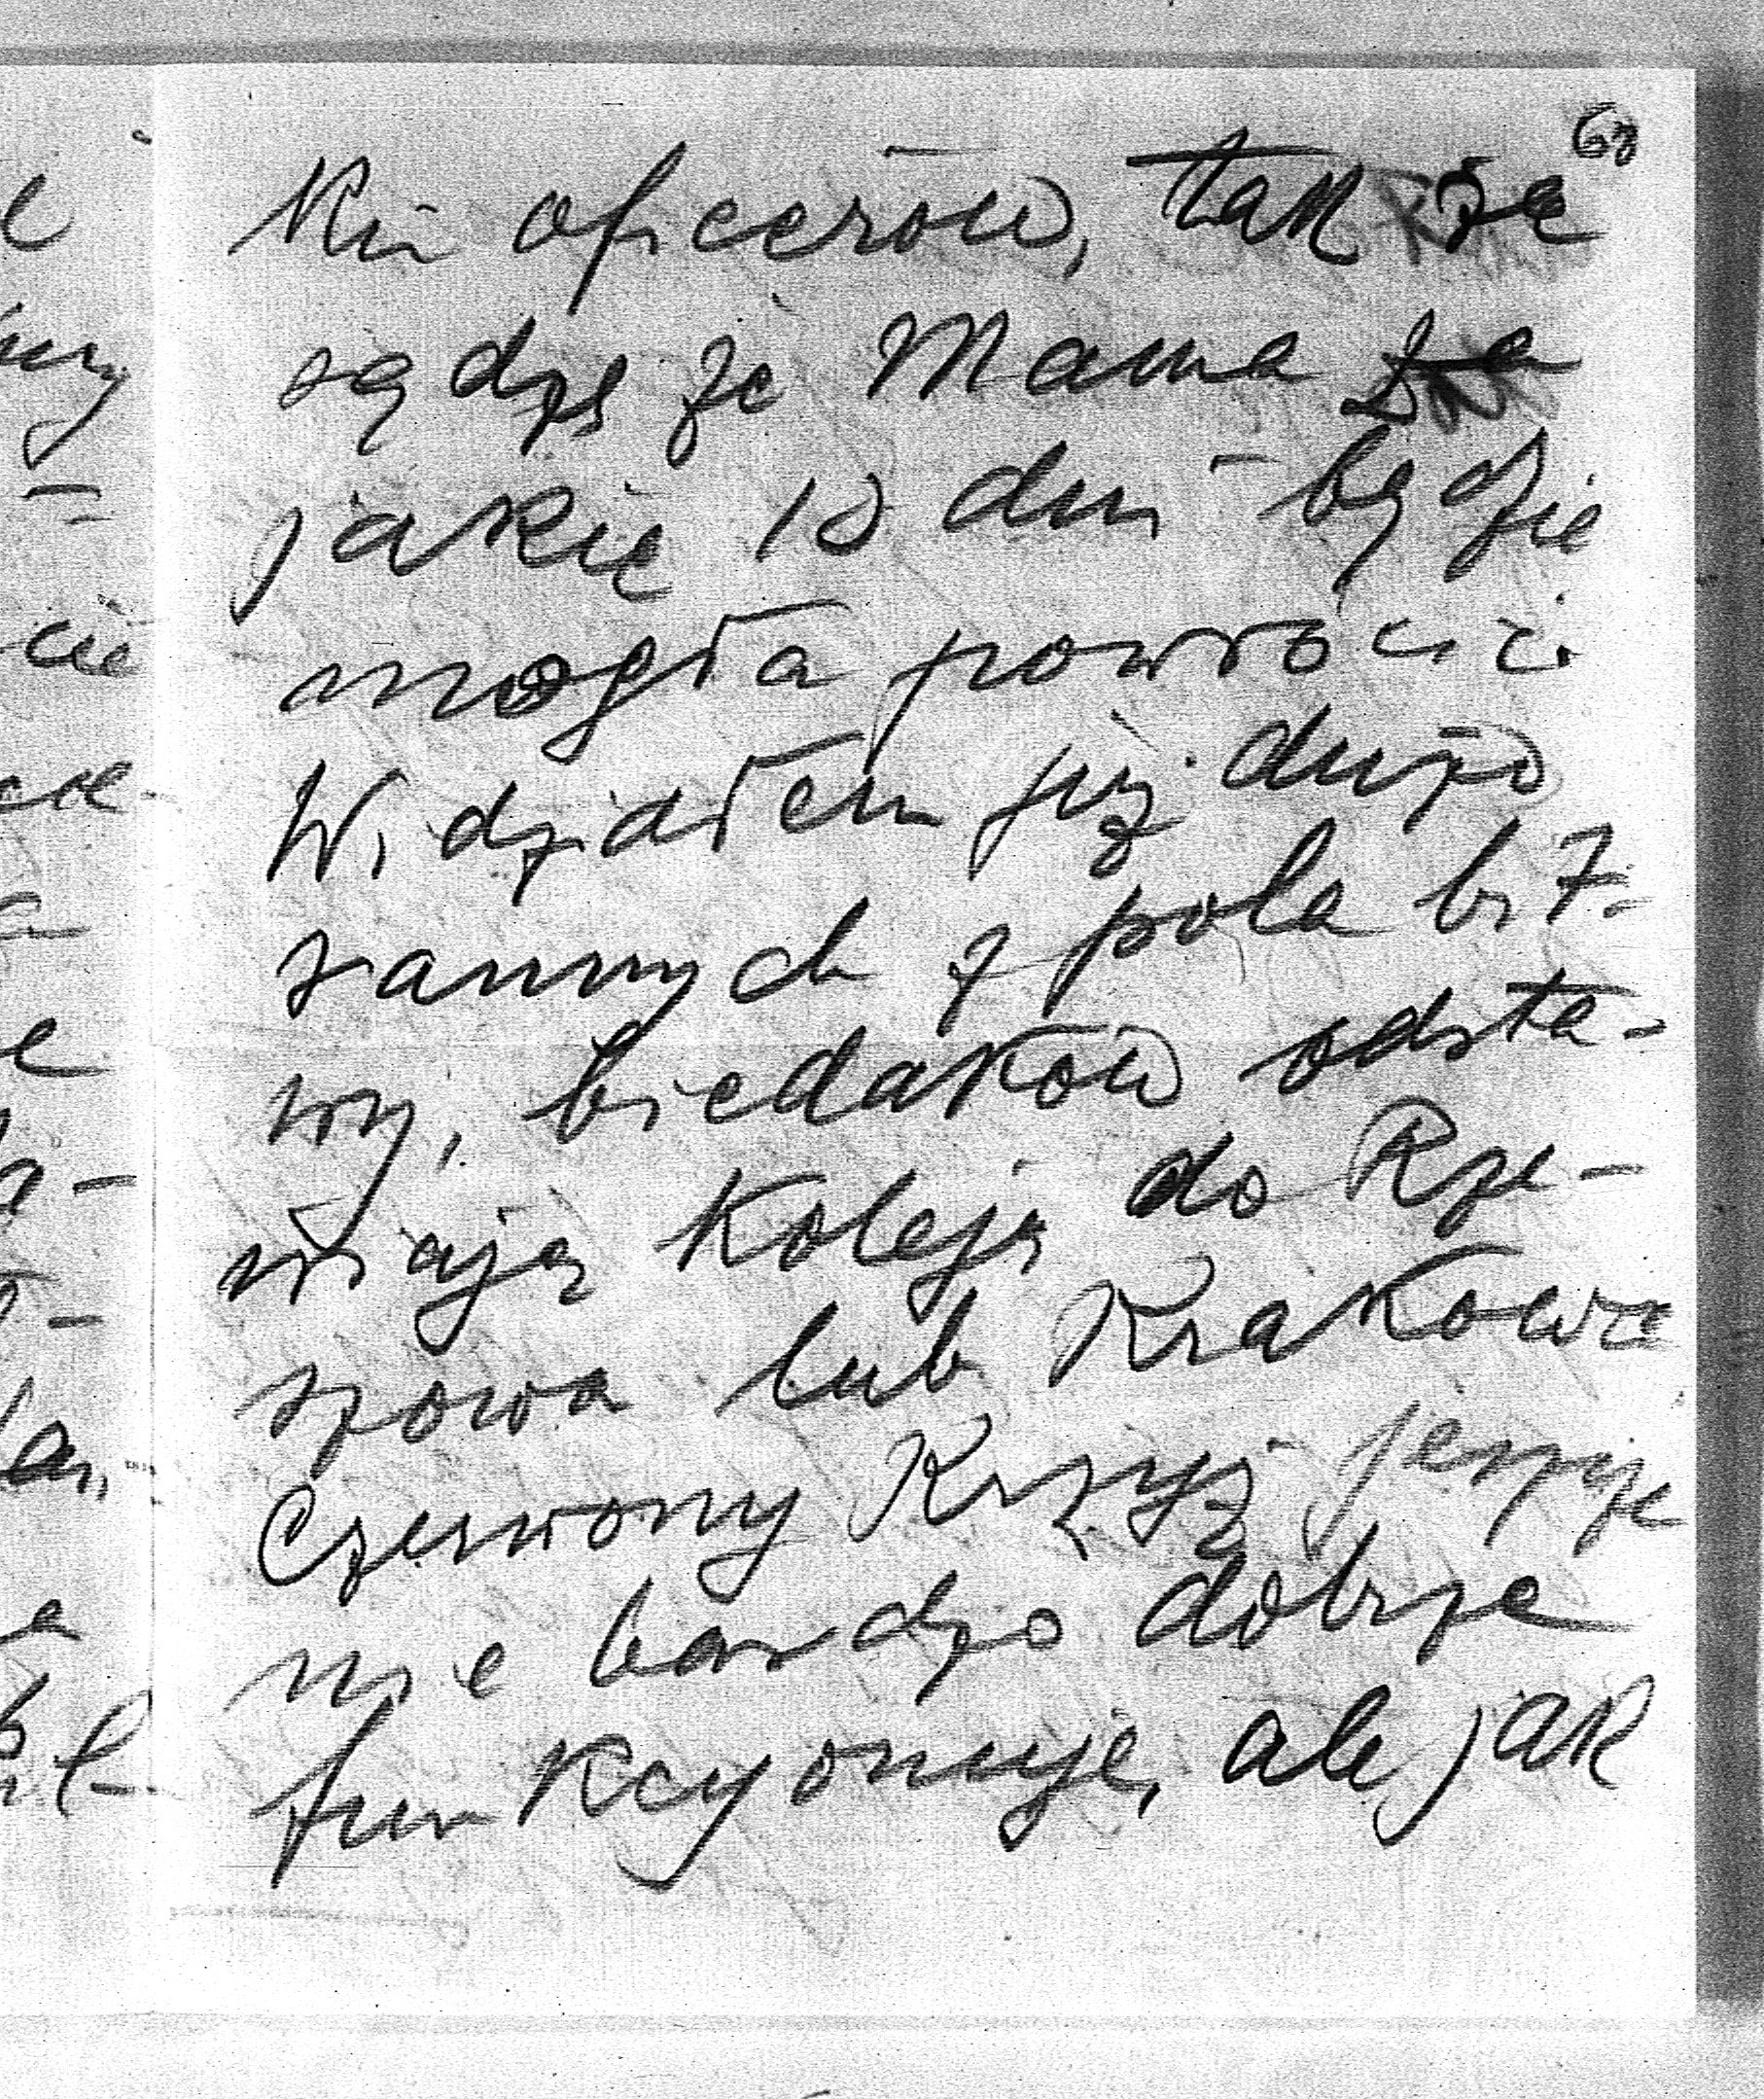 68
ki oficerów, tak że
sądzę że Mama za
jakie 10 dni będzie
mogła powrócić.
Widziałem już dużo
rannych z pola bit-
wy, biedaków odsta-
wiają koleją do Rze-
szowa lub Krakowa
Czerwony Krzyż jeszcze
nie bardzo dobrze
funkcyonuje, ale jak